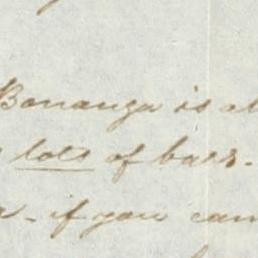 Bonanza is at
lots of bars.
- if you can